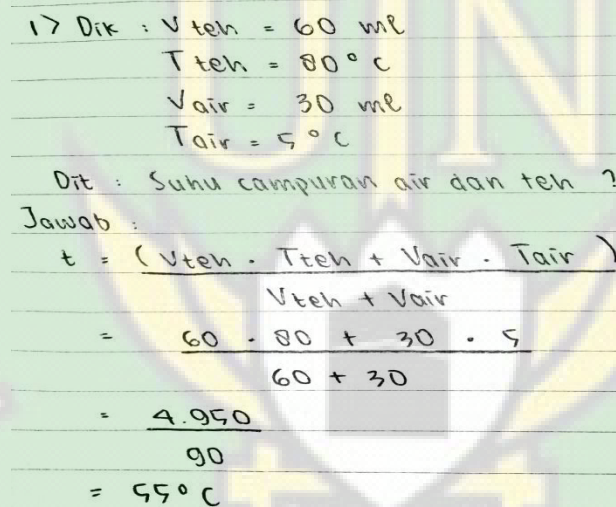 1) Dik : V teh = 60 ml
T teh = 80° C
Vair = 30 ml
Tair = 5° C
Dit : Suhu campuran air dan teh ?
Jawab :
t = (Vteh . Tteh + Vair . Tair)
Vteh + Vair
= 60 . 80 + 30 . 5
60 + 30
= 4.950
90
= 55° C